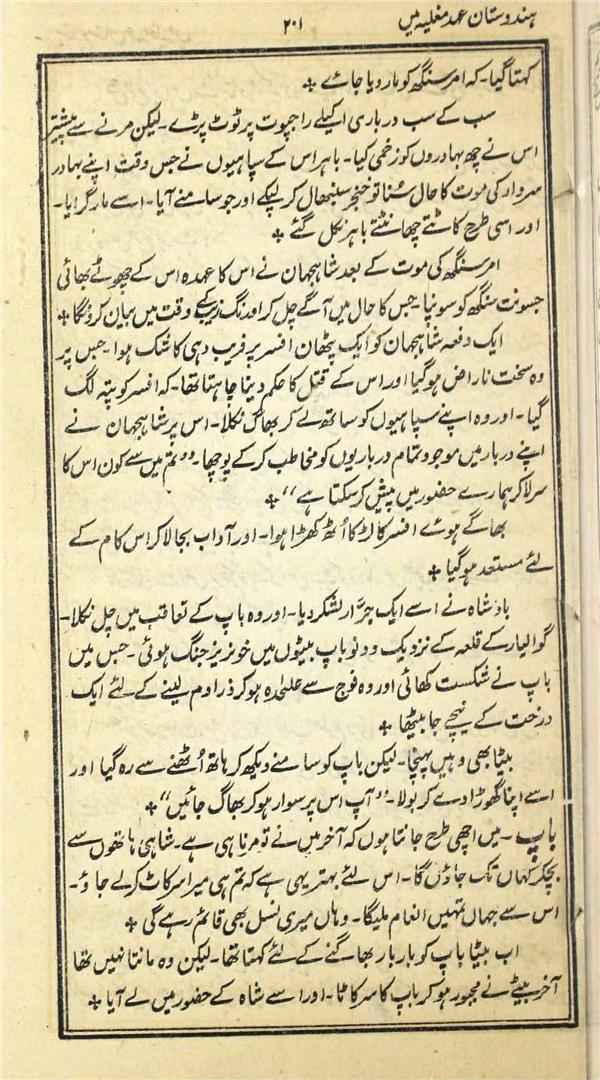 ہندوستان عہد مغلیہ میں
۲۰۱
کہتا گیا۔ کہ امر سنگھ کو مار دیا جائے ÷
سب کے سب درباری اکیلے راجپوت پر ٹوٹ پڑے۔ لیکن مرنے سے پیشتر
اس نے چھ بہادروں کو زخمی کیا۔ باہر اس کے سپاہیوں نے جس وقت اپنے بہادر
سردار کی موت کا حال سُنا تو خنجر سنبھال کر لپکے اور جو سامنے آیا۔ اسے مار گرایا۔
اور اسی طرح کاٹتے چھانٹتے باہر نکل گئے ÷
امر سنگھ کی موت کے بعد شاہجہان نے اس کا عہدہ اس کے چھوٹے بھائی
جسونت سنگھ کو سونپا۔ جس کا حال میں آگے چل کر اورنگ زیب کے وقت میں بیان کرونگا ÷
ایک دفعہ شاہجہان کو ایک پٹھان افسر پر فریب دہی کا شک ہوا۔ جس پر
وہ سخت ناراض ہو گیا اور اس کے قتل کا حکم دینا چاہتا تھا۔ کہ افسر کو پتہ لگ
گیا۔ اور وہ اپنے سپاہیوں کو ساتھ لے کر بھاگ نکلا۔ اس پر شاہجہان نے
اپنے دربار میں موجود تمام درباریوں کو مخاطب کر کے پوچھا۔ ’’تم میں سے کون اس کا
سر لا کر ہمارے حضور میں پیش کر سکتا ہے‘‘ ÷
بھاگے ہوئے افسر کا لڑکا اُٹھ کھڑا ہوا۔ اور آداب بجا لا کر اس کام کے
لئے مستعد ہو گیا ÷
بادشاہ نے اسے ایک جرّار لشکر دیا۔ اور وہ باپ کے تعاقب میں چل نکلا۔
گوالیار کے قلعہ کے نزدیک دونو باپ بیٹوں میں خونریز جنگ ہوئی۔ جس میں
باپ نے شکست کھائی اور وہ فوج سے علیحدہ ہو کر ذرا دم لینے کے لئے ایک
درخت کے نیچے جا بیٹھا ÷
بیٹا بھی وہیں پہنچا۔ لیکن باپ کو سامنے دیکھ کر ہاتھ اُٹھنے سے رہ گیا اور
اسے اپنا گھوڑا دے کر بولا۔ ’’آپ اس پر سوار ہو کر بھاگ جائیں‘‘ ÷
باپ۔ میں اچھی طرح جانتا ہوں کہ آخر میں نے تو مرنا ہی ہے۔ شاہی ہاتھوں سے
بچکر کہاں تک جاؤں گا۔ اس لئے بہتر یہی ہے کہ تم ہی میرا سر کاٹ کر لے جاؤ۔
اس سے جہاں تمہیں انعام ملیگا۔ وہاں میری نسل بھی قائم رہے گی ÷
اب بیٹا باپ کو بار بار بھاگنے کے لئے کہتا تھا۔ لیکن وہ مانتا نہیں تھا
آخر بیٹے نے مجبور ہو کر باپ کا سر کاٹا۔ اور اسے شاہ کے حضور میں لے آیا ÷